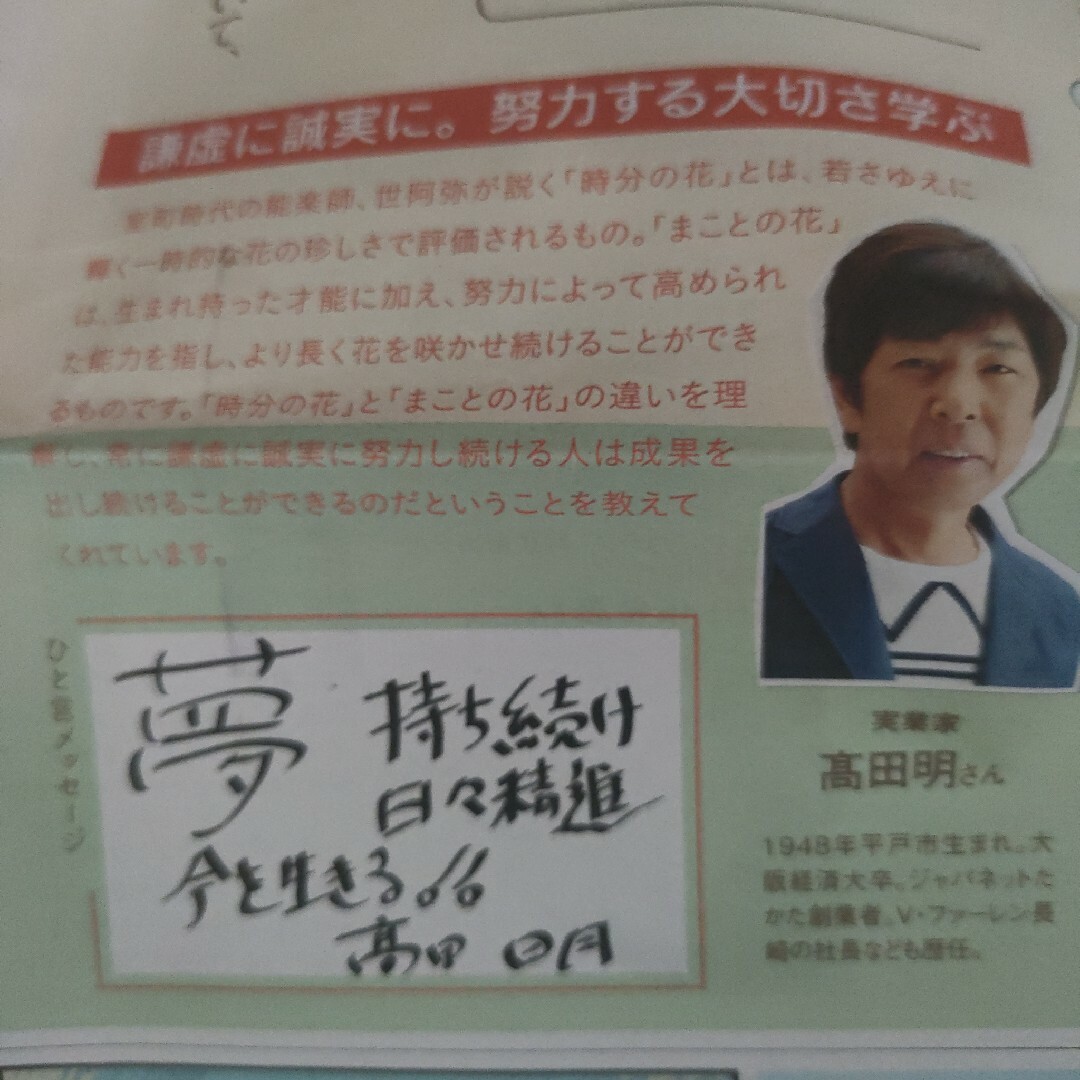 いて
謙虚に誠実に。努力する大切さ学ぶ
室町時代の能楽師、世阿弥が説く「時分の花」とは、若さゆえに
輝く一時的な花の珍しさで評価されるもの。「まことの花」
は、生まれ持った才能に加え、努力によって高められ
た能力を指し、より長く花を咲かせ続けることができ
るものです。「時分の花」と「まことの花」の違いを理
解し、常に謙虚に誠実に努力し続ける人は成果を
出し続けることができるのだということを教えて
くれています。
ひと言メッセージ
夢 持ち続け
日々精進
今を生きる。!!
髙田 明
実業家
髙田明さん
1948年平戸市生まれ。大
阪経済大卒。ジャパネットた
かた創業者。V・ファーレン長
崎の社長なども歴任。